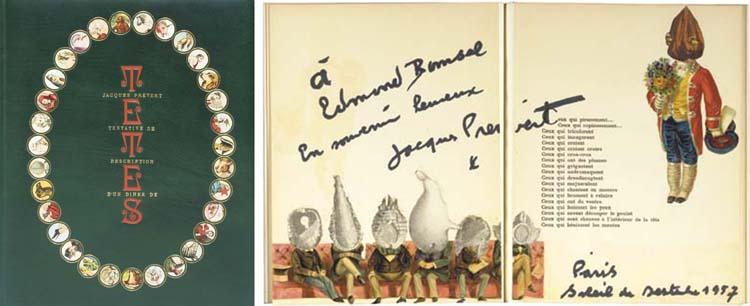 TETES
JACQUES PREVERT
TENTATIVE DE
DESCRIPTION
D'UN DINER DE
à
Edmond Bomsel
En souvenir heureux
Jacques Prevert
Ceux qui pieusement...
Ceux qui copieusement...
Ceux qui tricolorent
Ceux qui inaugurent
Ceux qui croient
Ceux qui croient croire
Ceux qui croa-croa
Ceux qui ont des plumes
Ceux qui grignotent
Ceux qui andromaquent
Ceux qui dreadnoughtent
Ceux qui majusculent
Ceux qui chantent en mesure
Ceux qui brossent à reluire
Ceux qui ont du ventre
Ceux qui baissent les yeux
Ceux qui savent découper le poulet
Ceux qui sont chauves à l'intérieur de la tête
Ceux qui bénissent les meutes
Paris
Soleil de Septembre 1957